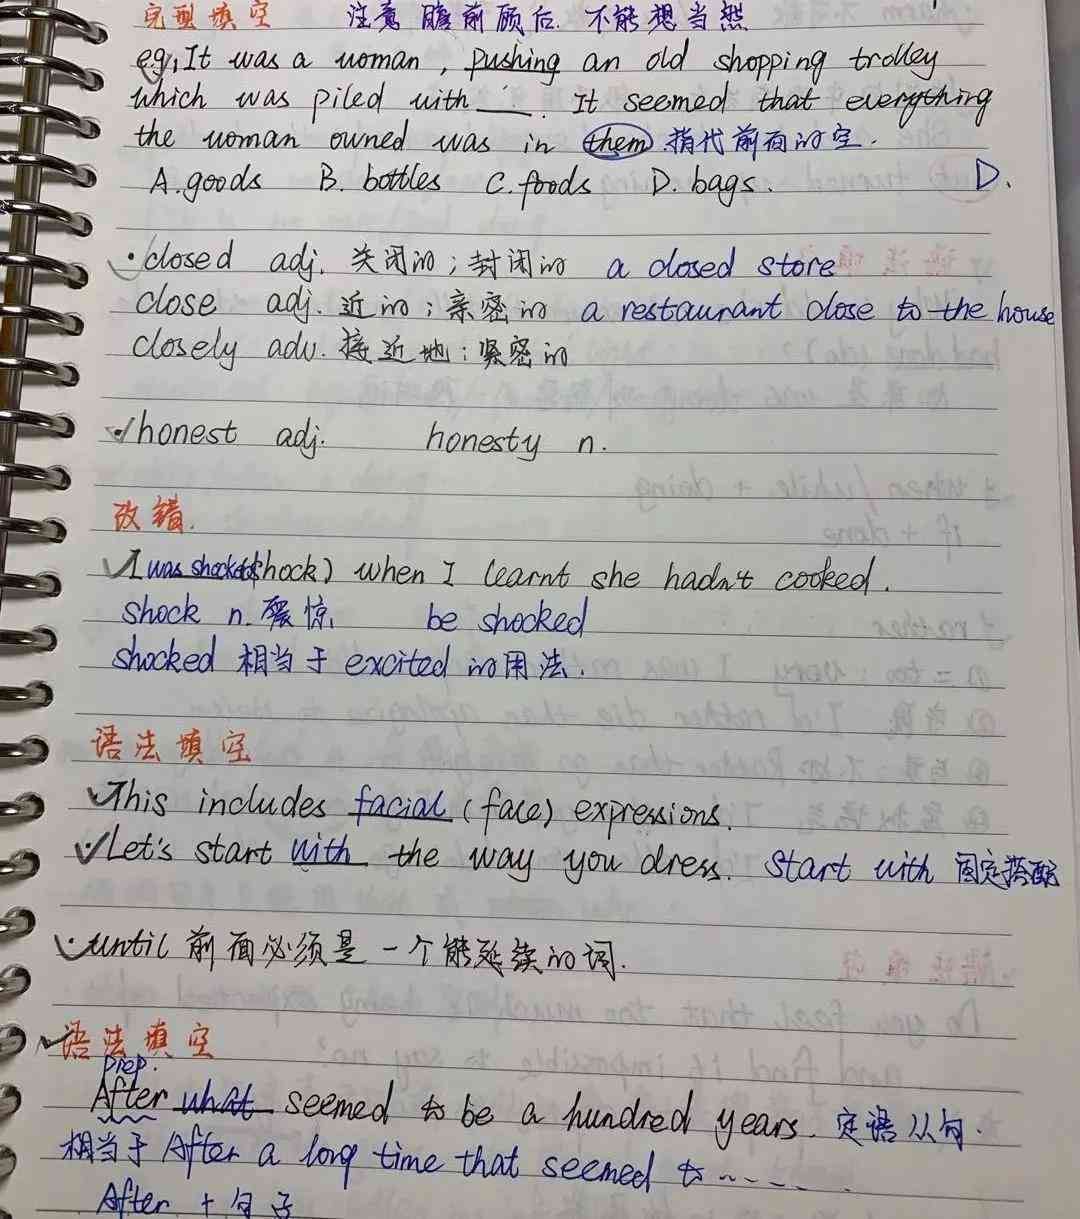 完型填空 注意 瞻前顾后. 不能想当然
e.g. It was a woman, pushing an old shopping trolley
which was piled with ___. It seemed that everything
the woman owned was in them. 指代前面的空.
A. goods B. bottles C. foods D. bags. D.
· closed adj. 关闭的; 封闭的 a closed store
close adj. 近的; 亲密的 a restaurant close to the house
closely adv. 接近地; 紧密的
honest adj. honesty n.
改错.
I was shocked (shock) when I learnt she hadn't cooked.
shock n. 震惊 be shocked
shocked 相当于 excited 的用法.
语法填空
This includes facial (face) expressions.
Let's start with the way you dress. start with 固定搭配
· until 前面必须是一个能延续的词.
语法填空
prep.
After what seemed to be a hundred years. 定语从句.
相当于 After a long time that seemed to ------
After + 句子